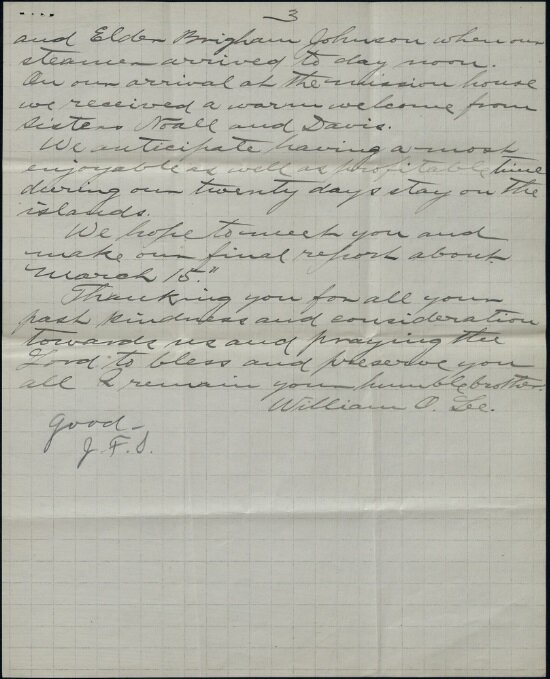 3
and Elder Brigham Johnson when our
steamer arrived to day noon.
On our arrival at the mission house
we received a warm welcome from
sisters Noall and Davis.
We anticipate having a most
enjoyable as well as profitable time
during our twenty days stay on the
islands.
We hope to meet you and
make our final report about
March 15."
Thanking you for all your
past kindness and consideration
towards us and praying the
Lord to bless and preserve you
all I remain your humble brother.
William O. Lee.
Good-
J. F. S.